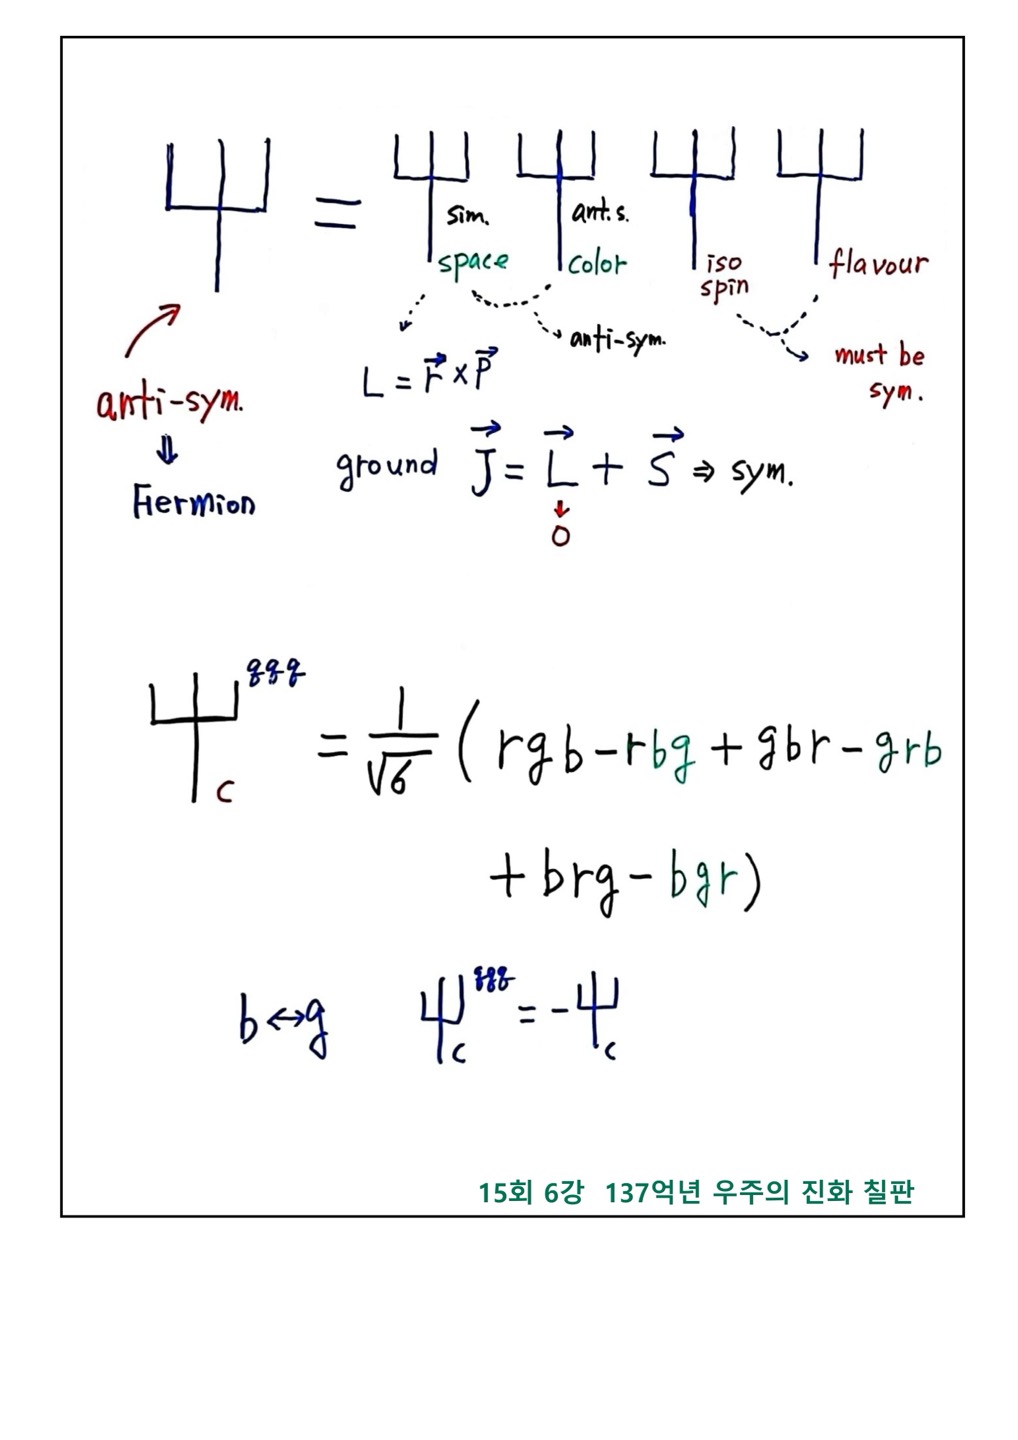 Ψ = Ψ Ψ Ψ Ψ
sim. ant.s.
space color iso spin flavour
anti-sym.
must be
sym.
L = r⃗ × P⃗
anti-sym.
⇓
Fiermion
ground J⃗ = L⃗ + S⃗ ⇒ sym.
↓
0
Ψ_c^qqq = 1/√6 ( rgb - rbg + gbr - grb
+ brg - bgr )
b ↔ g Ψ_c^qqq = -Ψ_c
15회 6강 137억년 우주의 진화 칠판